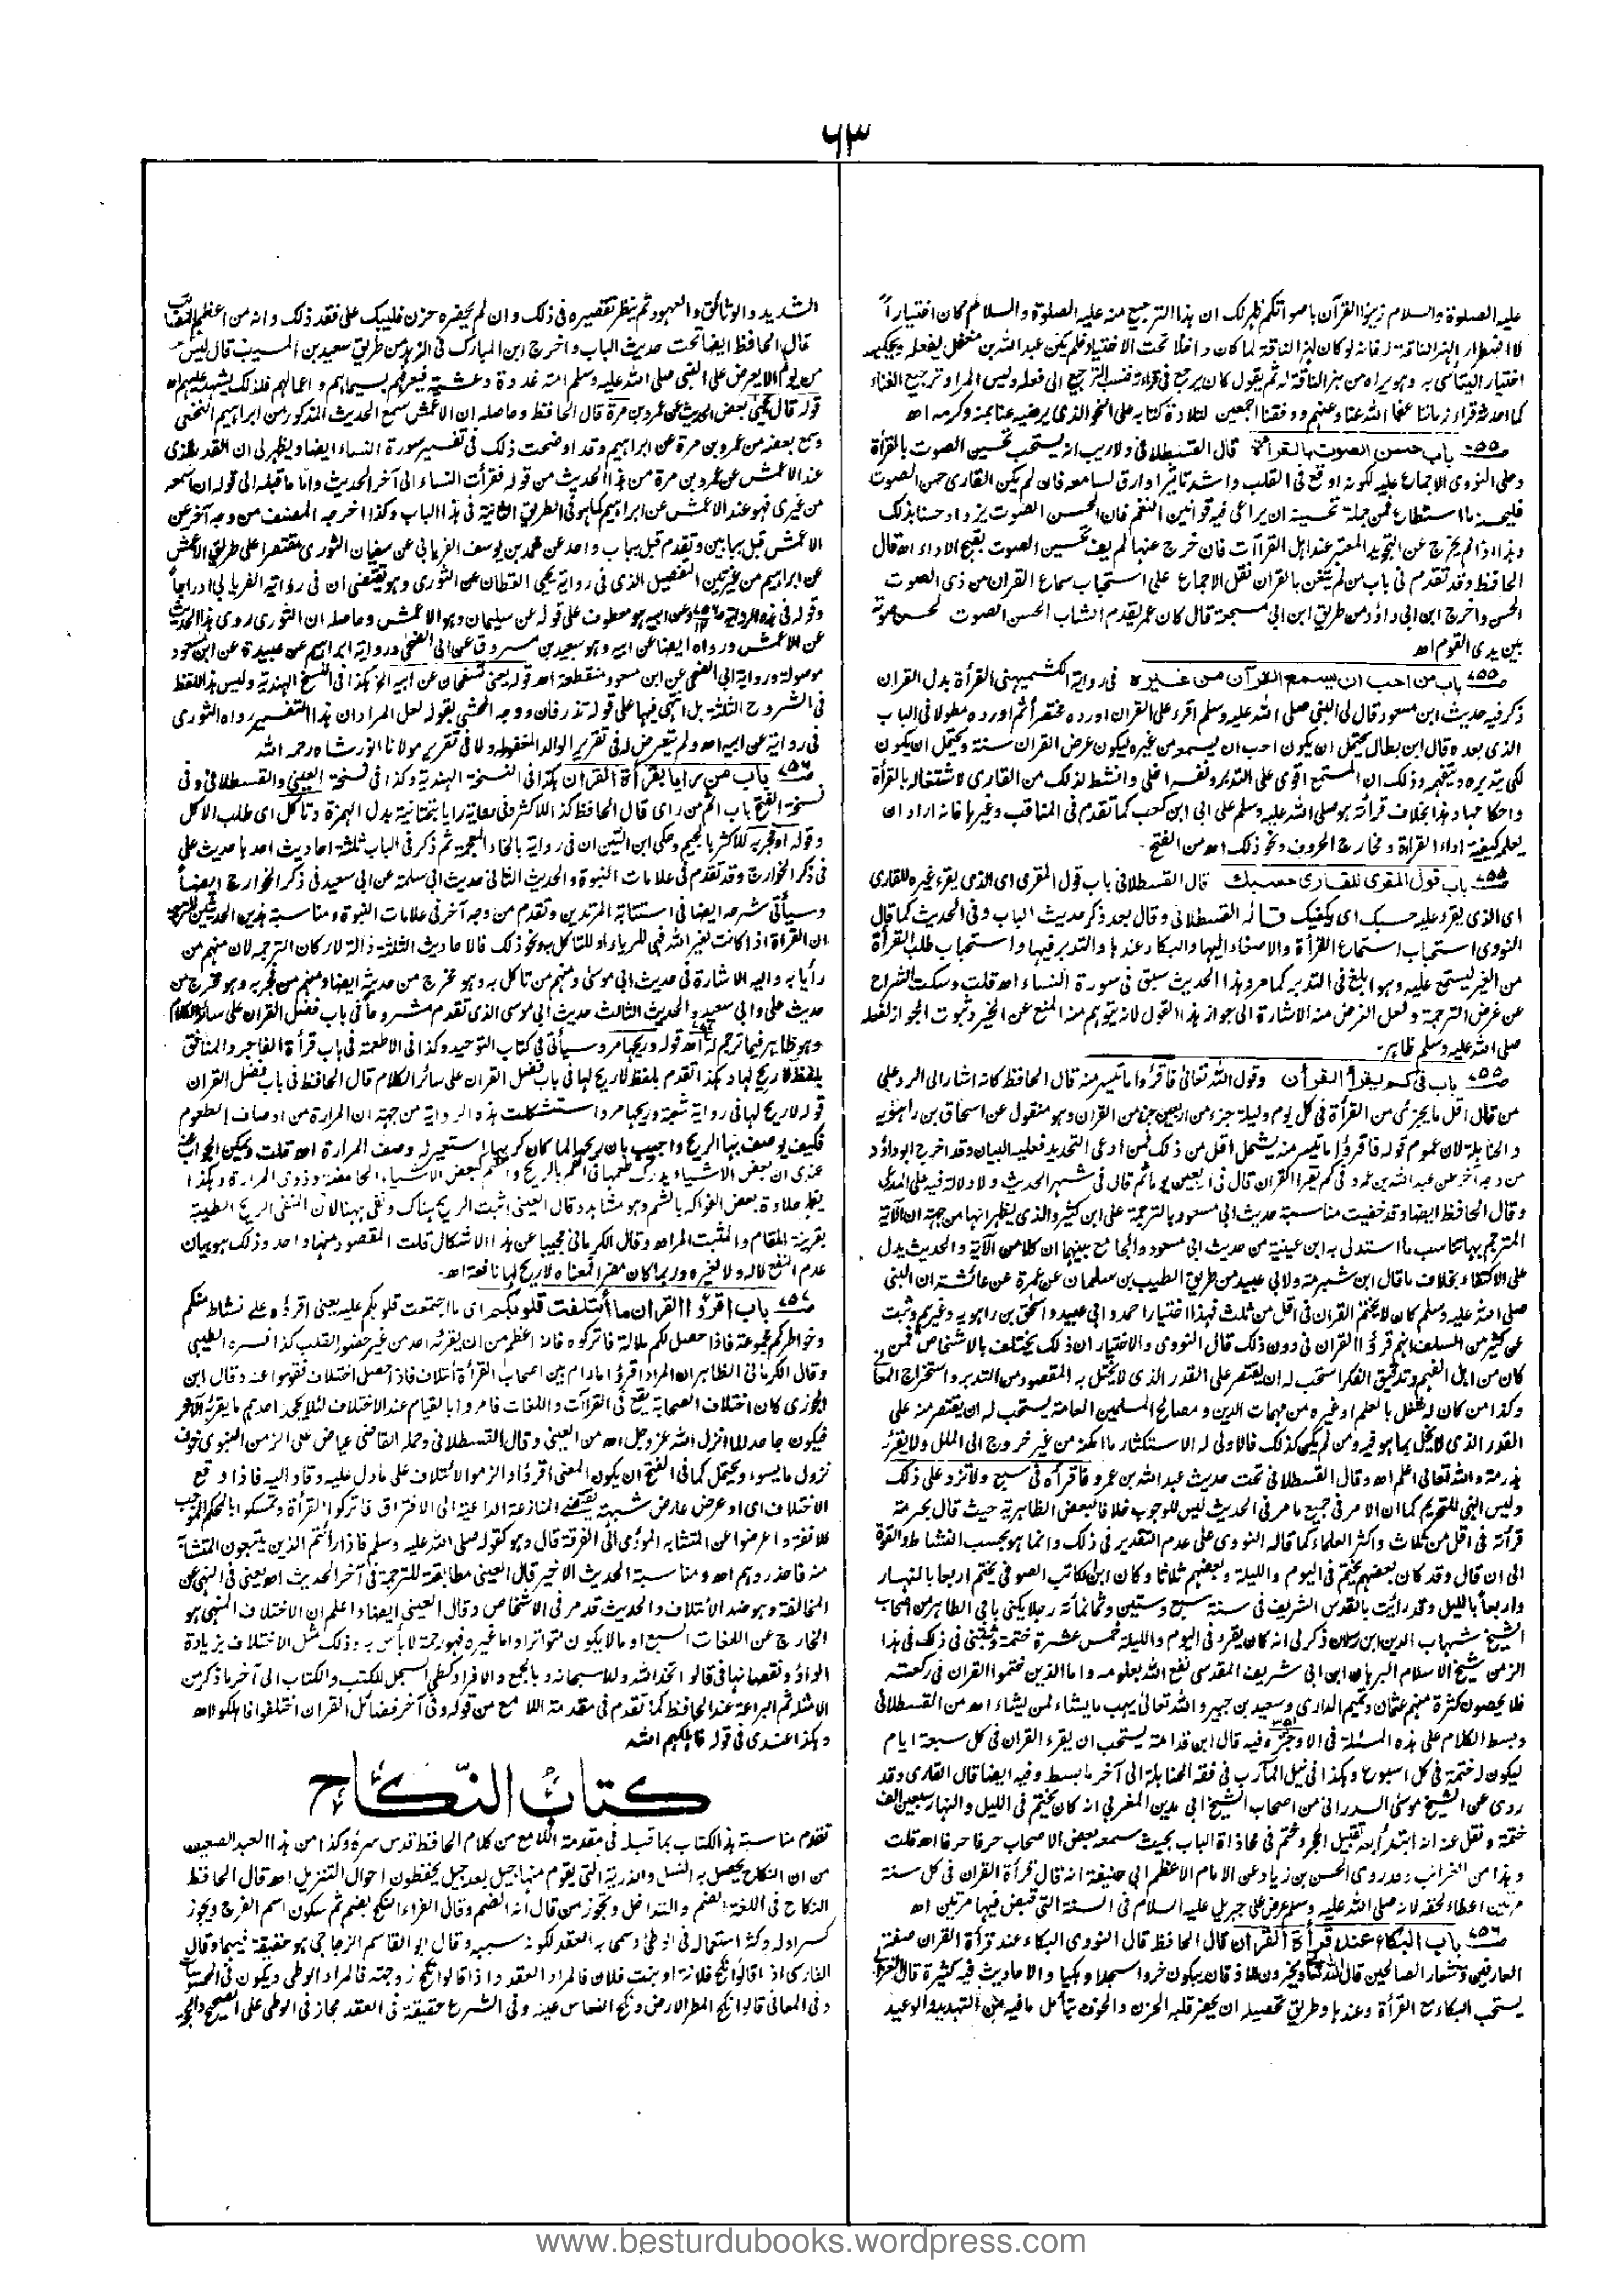 ٦٣
عليه الصلوة والسلام زينوا القرآن باصواتكم ظهر لك ان هذا الترجيع منه عليه الصلوة والسلام كان اختياراً
لا اضطرار لهز الناقة له فانه لو كان لهز الناقة لما كان داخلا تحت الاختيار فلم يكن عبدالله بن مغفل يفعله ويحكيه
اختيار ليتاسى به وهو يراه من هز الناقة له ثم يقول كان يرجع فى قراءته فنسب الترجيع الى فعله وليس المراد ترجيع الغناء
كما احدثه قراء زماننا عفا الله عنا وعنهم ووفقنا اجمعين لتلاوة كتابه على النحو الذى يرضيه عنا بمنه وكرمه اھ
<u>٧٥٥</u> باب حسن الصوت بالقراءة قال القسطلانى ولاريب انه يستحب تحسين الصوت بالقرأة
وحكى النووى الاجماع عليه لكونه اوقع فى القلب واشد تاثيرا وارق لسامعه فان لم يكن القارى حسن الصوت
فليحسنه ما استطاع فمن جملة تحسينه ان يراعى فيه قوانين النغم فان الحسن الصوت يزداد حسنا بذلك
وهذا اذا لم يخرج عن التجويد المعتبر عند اهل القراآت فان خرج عنها لم يف تحسين الصوت بقبح الاداء اھ قال
الحافظ وقد تقدم فى باب من لم يتغن بالقران نقل الاجماع على استحباب سماع القران من ذى الصوت
الحسن واخرج ابن ابى داؤد من طريق ابن ابى مسجعة قال كان عمر يقدم الشاب الحسن الصوت لحسن صوته
بين يدى القوم اھ
<u>٧٥٥</u> باب من احب ان يسمع القرآن من غيره فى رواية الكشميهنى القرأة بدل القران
ذكر فيه حديث ابن مسعود قال لى النبى صلى الله عليه وسلم اقرء على القران اورده مختصراً ثم اورده مطولا فى الباب
الذى بعده قال ابن بطال يحتمل ان يكون احب ان يسمعه من غيره ليكون عرض القران سنة ويحتمل ان يكون
لكى يتدبره ويتفهمه وذلك ان المستمع اقوى على التدبر ونفسه اخلى وانشط لذلك من القارى لاشتغاله بالقرأة
واحكامها وهذا بخلاف قرأته هو صلى الله عليه وسلم على ابى ابن كعب كما تقدم فى المناقب وغيرها فانه اراد ان
يعلمه كيفية اداء القراءة ومخارج الحروف ونحو ذلك اھ من الفتح -
<u>٧٥٥</u> باب قول المقرى للقارى حسبك قال القسطلانى باب قول المقرى اى الذى يقرء غيره للقارى
اى الذى يقرء عليه حسبك اى يكفيك قاله القسطلانى وقال بعد ذكر حديث الباب وفى الحديث كما قال
النووى استحباب استماع القرأة والاصغاء اليها والبكاء عندها والتدبر فيها واستحباب طلب القرأة
من الغير ليستمع عليه وهو ابلغ فى التدبر كما مر وهذا الحديث سبق فى سورة النساء اھ قلت وسكت الشراح
عن غرض الترجمة ولعل الغرض منه الاشارة الى جواز هذا القول لانه يتوهم منه المنع عن الخير وثبوت الجواز لفعله
صلى الله عليه وسلم ظاهر -
<u>٧٥٥</u> باب فى كم يقرأ القرأن وقول الله تعالى فاقرؤا ما تيسر منه قال الحافظ كانه اشار الى الرد على
من قال اقل ما يجزئ من القرأة فى كل يوم وليلة جزء من اربعين جزء من القران وهو منقول عن اسحاق بن راهويه
والحنابلة لان عموم قوله فاقرؤا ما تيسر منه يشمل اقل من ذلك فمن ادعى التحديد فعليه البيان وقد اخرج ابوداؤد
من وجه آخر عن عبدالله بن عمرو فى كم يقرأ القران قال فى اربعين يوما ثم قال فى شهر الحديث ولا دلالة فيه على المدعى
وقال الحافظ ايضا وقد خفيت مناسبة حديث ابى مسعود بالترجمة على ابن كثير والذى يظهر انها من جهة ان الآية
المترجم بها تناسب ما استدل به ابن عيينة من حديث ابى مسعود والجامع بينهما ان كلا من الآية والحديث يدل
على الاكتفاء بخلاف ما قال ابن شبرمة ولابى عبيد من طريق الطيب بن سلمان عن عمرة عن عائشة ان النبى
صلى الله عليه وسلم كان لا يختم القران فى اقل من ثلث فهذا اختيار احمد وابى عبيد واسحق بن راهويه وغيرهم وثبت
عن كثير من السلف انهم قرؤا القران فى دون ذلك قال النووى والاختيار ان ذلك يختلف بالاشخاص فمن
كان من اهل الفهم وتدقيق الفكر استحب له ان يقتصر على القدر الذى لا يختل به المقصود من التدبر واستخراج المعانى
وكذا من كان له شغل بالعلم او غيره من مهمات الدين ومصالح المسلمين العامة يستحب له ان يقتصر منه على
القدر الذى لا يخل بما هو فيه ومن لم يكن كذلك فالاولى له الاستكثار ما امكنه من غير خروج الى الملل ولا يقرئه
هذرمة والله تعالى اعلم اھ وقال القسطلانى تحت حديث عبدالله بن عمرو فاقرأه فى سبع ولا تزد على ذلك
وليس النهى للتحريم كما ان الامر فى جميع ما مر فى الحديث ليس للوجوب خلافا لبعض الظاهرية حيث قال بحرمة
قرأته فى اقل من ثلاث واكثر العلماء كما قاله النووى على عدم التقدير فى ذلك وانما هو بحسب النشاط والقوة
الى ان قال وقد كان بعضهم يختم فى اليوم والليلة وبعضهم ثلاثا وكان ابن الكاتب الصوفى يختم اربعا بالنهار
واربعاً بالليل وقد رأيت بالقدس الشريف فى سنة سبع وستين وثمانمائة رجلا يكنى بابى الطاهر من اصحاب
الشيخ شهاب الدين ابن رسلان ذكر لى انه كان يقرء فى اليوم والليلة خمس عشرة ختمة وثبتنى فى ذلك فى هذا
الزمن شيخ الاسلام البرهان ابن ابى شريف المقدسى نفع الله بعلومه واما الذين ختموا القران فى ركعة
فلا يحصون كثرة منهم عثمان وتميم الدارى وسعيد بن جبير والله تعالى يهب ما يشاء لمن يشاء اھ من القسطلانى
وبسط الكلام على هذه المسئلة فى الاوجز وفيه قال ابن قدامة يستحب ان يقرء القران فى كل سبعة ايام
ليكون له ختمة فى كل اسبوع وهكذا فى نيل المآرب فى فقه الحنابلة الى آخر ما بسط وفيه ايضا قال القارى وقد
روى عن الشيخ موسى السدرانى من اصحاب الشيخ ابى مدين المغربى انه كان يختم فى الليل والنهار سبعين الف
ختمة ونقل عنه انه ابتدأ بعد تقبيل الحجر وختم فى محاذاة الباب بحيث سمعه بعض الاصحاب حرفا حرفا اھ قلت
وهذا من الغرائب وقد روى الحسن بن زياد عن الامام الاعظم ابى حنيفة انه قال قرأة القران فى كل سنة
مرتين اعطاء لحقه لانه صلى الله عليه وسلم عرض على جبريل عليه السلام فى السنة التى قبض فيها مرتين اھ
<u>٧٥٦</u> باب البكاء عند قرأة القرأن قال الحافظ قال النووى البكاء عند قرأة القران صفة
العارفين وشعار الصالحين قال الله تعالى ويخرون للاذقان يبكون خروا سجدا وبكيا والاحاديث فيه كثيرة قال الغزالى
يستحب البكاء مع القرأة وعندها وطريق تحصيله ان يحضر قلبه الحزن والخوف بتأمل ما فيه من التهديد والوعيد
الشديد والوثائق والعهود ثم ينظر تقصيره فى ذلك وان لم يحضره حزن فليبك على فقد ذلك وانه من اعظم المصائب
قال الحافظ ايضا تحت حديث الباب واخرج ابن المبارك فى الزهد من طريق سعيد بن المسيب قال ليس
من يوم الا يعرض على النبى صلى الله عليه وسلم امته غدوة وعشية فيعرفهم بسيماهم واعمالهم فلذلك يشهد عليهم اھ
قوله قال يحيى بعض الحديث عن عمرو بن مرة قال الحافظ وحاصله ان الاعمش سمع الحديث المذكور من ابراهيم النخعى
وسمع بعضه من عمرو بن مرة عن ابراهيم وقد اوضحت ذلك فى تفسير سورة النساء ايضا ويظهر لى ان القدر الذى
عند الاعمش عن عمرو بن مرة من هذا الحديث من قوله فقرأت النساء الى آخر الحديث واما ما قبله الى قوله ان اسمعه
من غيرى فهو عند الاعمش عن ابراهيم كما هو فى الطريق الثانية فى هذا الباب وكذا اخرجه المصنف من وجه آخر عن
الاعمش قبل ببابين وتقدم قبل بباب واحد عن محمد بن يوسف الفريابى عن سفيان الثورى مقتصرا على طريق الاعمش
عن ابراهيم من غير تبين التفصيل الذى فى رواية يحيى القطان عن الثورى وهو يقتضى ان فى رواية الفريابى ادراجاً
وقوله فى هذه الرواية وعن ابيه هو معطوف على قوله عن سليمان وهو الاعمش وحاصله ان الثورى روى هذا الحديث
عن الاعمش ورواه ايضا عن ابيه وهو سعيد بن مسروق عن ابى الضحى ورواية ابراهيم عن عبيدة عن ابن مسعود
موصولة ورواية ابى الضحى عن ابن مسعود منقطعة اھ قوله يعنى سفيان عن ابيه الخ هكذا فى النسخ الهندية وليس هذا اللفظ
فى الشروح الثلثة بل انتهى فيها على قوله تذرفان ووجه المحشى بقوله لعل المراد ان هذا التفسير رواه الثورى
فى روايته عن ابيه اھ ولم يتعرض له فى تقرير الوالد المغفور له ولا فى تقرير مولانا انور شاه رحمه الله
<u>٧٥٦</u> باب من رايا بقرأة القران هكذا فى النسخة الهندية وكذا فى نسخة العينى والقسطلانى وفى
نسخة الفتح باب اثم من راى قال الحافظ كذا للاكثر وفى رواية رايا بتحتانية بدل الهمزة وتأكل اى طلب الاكل
وقوله او فجر به للاكثر بالجيم وحكى ابن التين ان فى رواية بالخاء المعجمة ثم ذكر فى الباب ثلثة احاديث احدها حديث على
فى ذكر الخوارج وقد تقدم فى علامات النبوة والحديث الثانى حديث ابى سلمة عن ابى سعيد فى ذكر الخوارج ايضاً
وسيأتى شرحه ايضا فى استتابة المرتدين وتقدم من وجه آخر فى علامات النبوة ومناسبة هذين الحديثين للترجمة
ان القراءة اذا كانت لغير الله فهى للرياء او للتاكل به ونحو ذلك فالاحاديث الثلثة دالة لاركان الترجمة لان منهم من
رأيا به واليه الاشارة فى حديث ابى موسى ومنهم من تاكل به وهو مخرج من حديثه ايضا ومنهم من فجر به وهو مخرج من
حديث على وابى سعيد والحديث الثالث حديث ابى موسى الذى تقدم مشروحا فى باب فضل القران على سائر الكلام
وهو ظاهر فيما ترجم له اھ قوله وريحها مر وسيأتى فى كتاب التوحيد وكذا فى الاطعمة فى باب قرأة الفاجر والمنافق
بلفظ لا ريح لها وهكذا تقدم بلفظ لا ريح لها فى باب فضل القران على سائر الكلام قال الحافظ فى باب فضل القران
قوله لا ريح لها فى رواية شعبة وريحها مر واستشكلت هذه الرواية من جهة ان المرارة من اوصاف الطعوم
فكيف يوصف بها الريح واجيب بان ريحها لما كان كريها استعير له وصف المرارة اھ قلت ويمكن الجواب
عندى ان بعض الاشياء يدرك طعمها فى الفم بالريح والشم كبعض الاشياء الحامضة وذوى المرارة وهكذا
يظهر حلاوة بعض الفواكه بالشم وهو مشاهد وقال العينى اثبت الريح هناك ونفى ههنا لان المنفى الريح الطيبة
بقرينة المقام والمثبت المر اھ وقال الكرمانى مجيبا عن هذا الاشكال قلت المقصود منهما واحد وذلك هو بيان
عدم النفع لا له ولا لغيره وربما كان مضرا فمعناه لا ريح لها نافعة اھ -
<u>٧٥٧</u> باب اقرؤا القران ما أئتلفت قلوبكم اى ما اجتمعت قلوبكم عليه يعنى اقرؤه على نشاط منكم
وخواطركم مجموعة فاذا حصل لكم ملالة فاتركوه فانه اعظم من ان يقرئه احد من غير حضور القلب كذا فسره الطيبى
وقال الكرمانى الظاهر ان المراد اقرؤا ما دام بين اصحاب القرأة أئتلاف فاذا حصل اختلاف فقوموا عنه وقال ابن
الجوزى كان اختلاف الصحابة يقع فى القراآت واللغات فامروا بالقيام عند الاختلاف لئلا يجحد احدهم ما يقرئه الآخر
فيكون جاحدا لما انزل الله عزوجل اھ من العينى وقال القسطلانى وحمله القاضى عياض على الزمن النبوى خوف
نزول ما يسوء ويحتمل كما فى الفتح ان يكون المعنى اقرؤا والزموا الائتلاف على ما دل عليه وقاد اليه فاذا وقع
الاختلاف اى او عرض عارض شبهة يقتضى المنازعة الداعية الى الافتراق فاتركوا القرأة وتمسكوا بالمحكم الموجب
للالفة واعرضوا عن المتشابه المؤدى الى الفرقة قال وهو كقوله صلى الله عليه وسلم فاذا رأيتم الذين يتبعون المتشابه
منه فاحذروهم اھ ومناسبة الحديث الاخير قال العينى مطابقته للترجمة فى آخر الحديث اھ يعنى فى النهى عن
المخالفة وهو ضد الائتلاف والحديث قد مر فى الاشخاص وقال العينى ايضا واعلم ان الاختلاف المنهى هو
الخارج عن اللغات السبع او ما لا يكون متواترا واما غيره فهو رحمة لا بأس به وذلك مثل الاختلاف بزيادة
الواو ونقصانها فى قالوا اتخذ الله ولدا سبحانه وبالجمع والافراد كطى السجل للكتب والكتاب الى آخر ما ذكر من
الامثلة ثم البراعة عند الحافظ كما تقدم فى مقدمة اللامع من قوله وفى آخر فضائل القران اختلفوا فاهلكوا اھ
وهكذا عندى فى قوله فاهلكهم الله
كتابُ النّكاح
تقدم مناسبة هذا الكتاب بما قبله فى مقدمة اللامع من كلام الحافظ قدس سره وكذا من هذا العبد الضعيف
من ان النكاح يحصل به النسل والذرية التى يقوم منها جيل بعد جيل يحفظون احوال التنزيل اھ قال الحافظ
النكاح فى اللغة الضم والتداخل وتجوز من قال انه الضم وقال الفراء النكح بضم ثم سكون اسم الفرج ويجوز
كسر اوله وكثر استعماله فى الوطئ وسمى به العقد لكونه سببه وقال ابو القاسم الزجاجى هو حقيقة فيهما وقال
الفارسى اذا قالوا نكح فلانة او بنت فلان فالمراد العقد واذا قالوا نكح زوجته فالمراد الوطى ويكون فى المحسوسات
وفى المعانى قالوا نكح المطر الارض ونكح النعاس عينه وفى الشرع حقيقة فى العقد مجاز فى الوطى على الصحيح والحجة
www.besturdubooks.wordpress.com